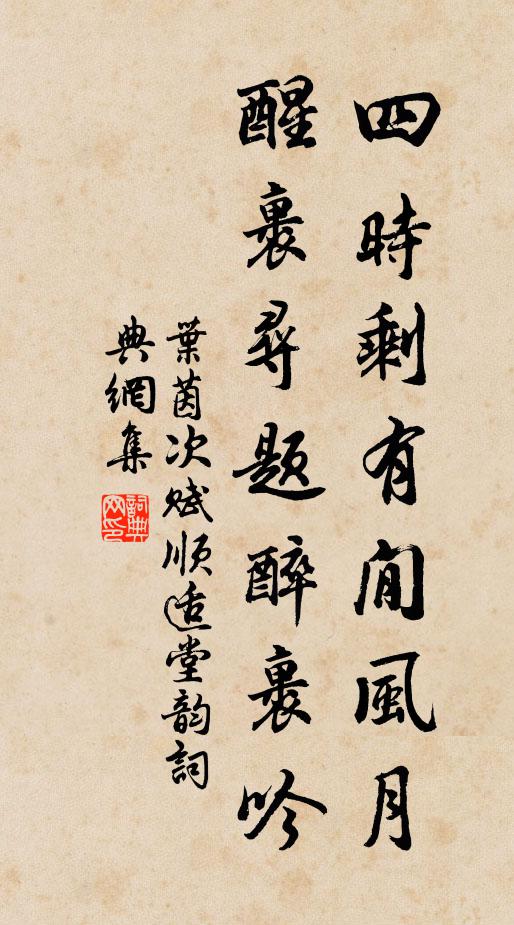 四時剩有閒風月
醒裏尋題醉裏吟
葉茵次賦順适堂韵詞
典網集
詞典
网印